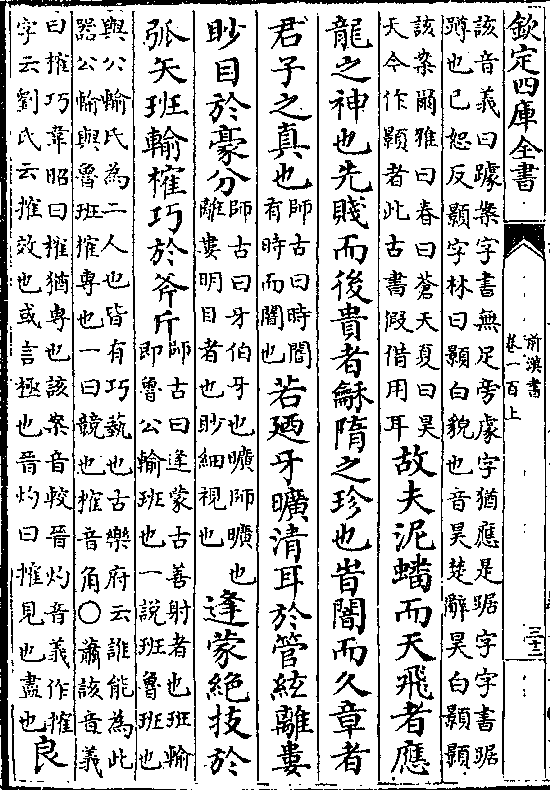 欽定四庫全書
前漢書
卷一百上
該音義曰躆案字書無足旁豦字猶應是踞字字書踞
蹲也已恕反顥字林曰顥白貌也音昊楚辭昊白顥顥
該案爾雅曰春曰蒼天夏曰昊
天今作顥者此古書假借用耳
故夫泥蟠而天飛者應
龍之神也先賤而後貴者龢隋之珍也旹闇而久章者
君子之真也
師古曰時闇
有時而闇也
若廼牙曠清耳於管絃離婁
眇目於豪分
師古曰牙伯牙也曠師曠也
離婁明目者也眇細視也
逢蒙絕技於
弧矢班輸榷巧於斧斤
師古曰逢蒙古善射者也班輸
即魯公輸班也一說班魯班也
與公輸氏為二人也皆有巧藝也古樂府云誰能為此
器公輸與魯班搉專也一曰競也搉音角○蕭該音義
曰搉巧韋昭曰榷猶專也該案音較晉灼音義作搉
字云劉氏云搉效也或言極也晉灼曰搉見也盡也
良